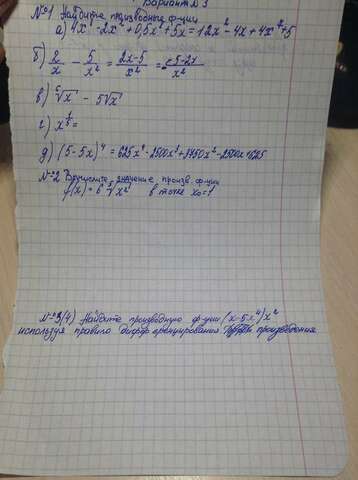 Вариант №3
№1 Найдите производные ф-ции
а) 4x³-2x²+0,5x⁸+5x=12x²-4x+4x⁷+5
б) 2/x - 5/x² = 2x-5/x² = 5-2x/x²
в) ⁶√x - 5√x
г)
д) (5-5x)⁴=625x⁴-2500x³+3750x²-2500x+625
№2 Вычислите значение произв. ф-ции
f(x)=6 ³√x² в точке x₀=1
№3(4) Найдите производную ф-ции (x-5x⁴)x²
используя правило дифференцирования произведения